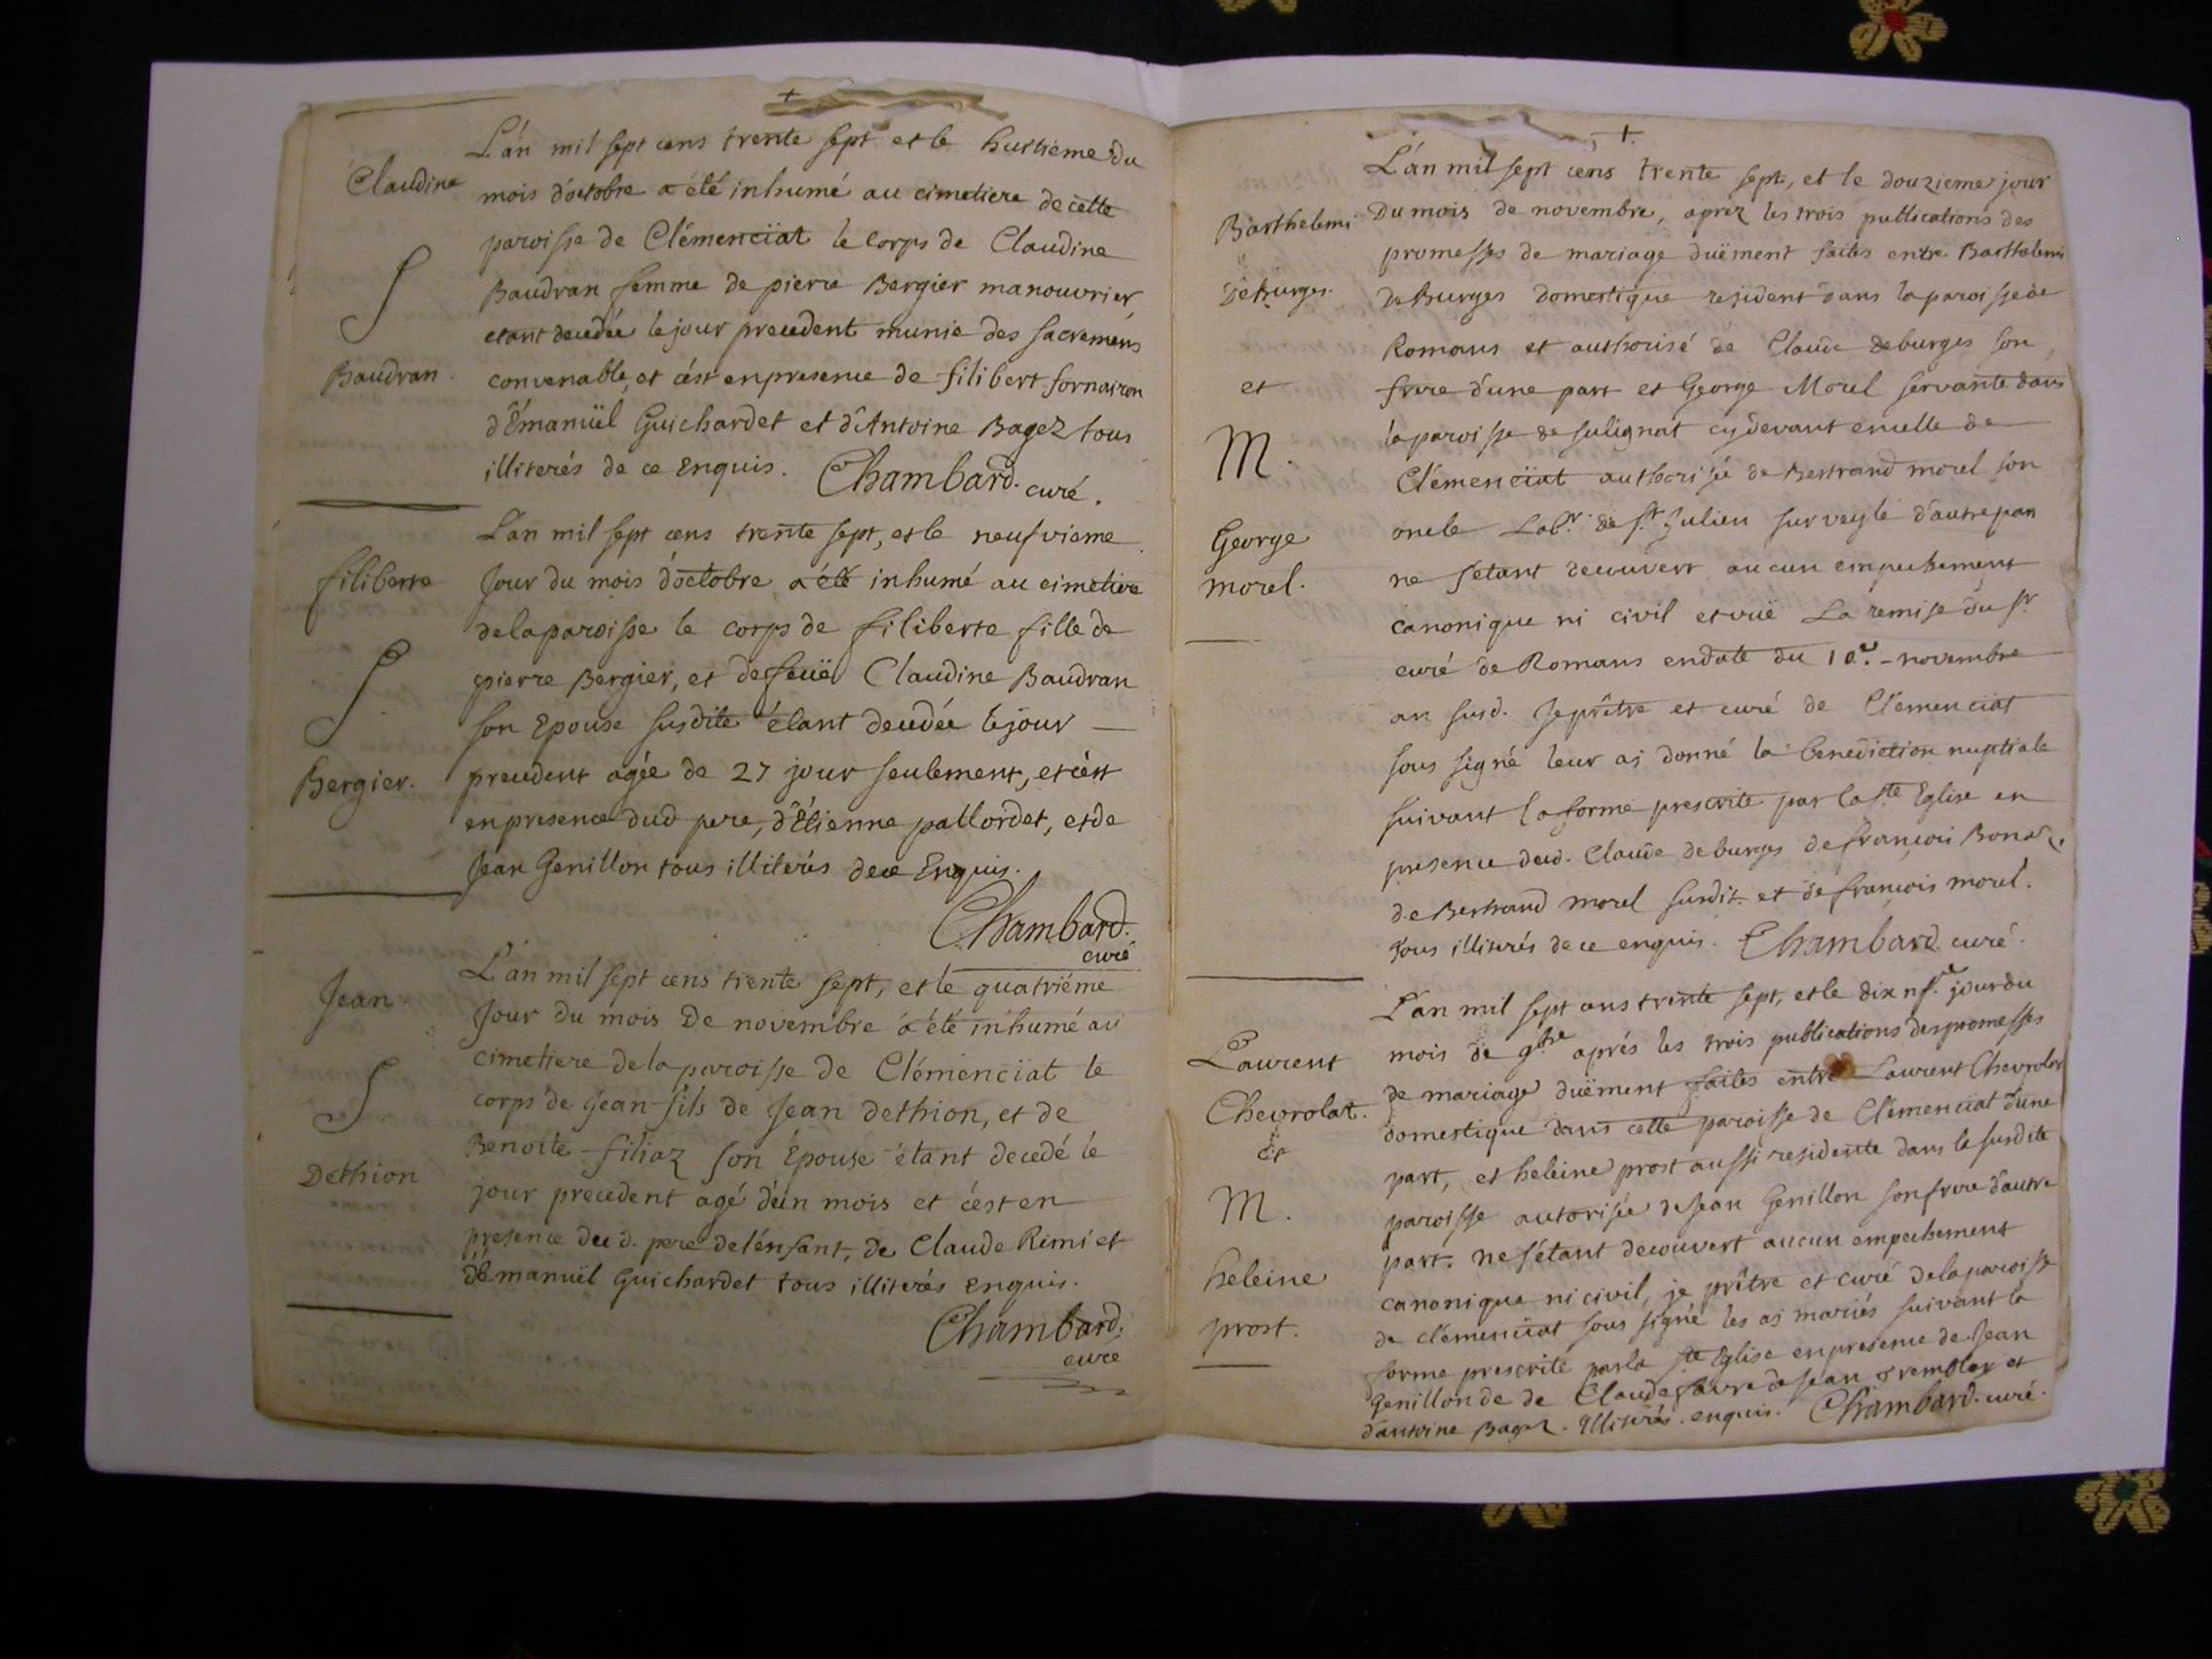 +
L'an mil sept cens trente sept et le huitieme du
Claudine
mois d'octobre a été inhumé au cimetiere de cette
paroisse de Clémenciat le corps de Claudine
S
Baudran femme de pierre Bergier manouvrier
etant decedée le jour precedent munie des sacremens
Baudran.
convenable, et c'est en presence de filibert fornairon
d'Emanüel Guichardet et d'Antoine Bagez tous
illiterés de ce Enquis. Chambard. curé.
L'an mil sept cens trente sept, et le neufvieme
filiberte
Jour du mois d'octobre a été inhumé au cimetiere
de la paroisse le corps de filiberte fille de
S
pierre Bergier, et de feuë Claudine Baudran
son Epouse susdite étant decedée le jour
Bergier.
precedent agée de 27 jour seulement, et c'est
en presence dud pere, d'Étienne pallordet, et de
Jean Genillon tous illiterés de ce Enquis.
Chambard.
curé
L'an mil sept cens trente sept, et le quatriéme
Jean
Jour du mois De novembre a été inhumé au
cimetiere de la paroisse de Clémenciat le
S
corps de Jean fils de Jean dethion, et de
Benoite filiaz son Épouse étant decedé le
Dethion
jour precedent agé d'un mois et c'est en
presence du d. pere de l'énfant, de Claude Remi et
d'Emanuël Guichardet tous illiterés enquis.
Chambard.
curé
+
L'an mil sept cens trente sept, et le douzieme jour
Barthelemi
Du mois de novembre, aprez les trois publications des
promesses de mariage duëment faites entre Barthelemi
DeBurges.
De Burges domestique resident dans la paroisse de
Romans et authorisé de Claude deburges son
et
frere d'une part et George Morel servante dans
M.
la paroisse de sulignat cydevant en celle de
Clémenciat authorisée de Bertrand morel son
George
oncle Labr. de St Julien sur veyle d'autre part
morel.
ne s'etant decouvert aucun empechement
canonique ni civil et vuë La remise du Sr
curé de Romans en date du 10e. novembre
an susd. Je prêtre et curé de Clémenciat
sous signé leur ai donné la benediction nuptiale
suivant la forme prescrite par la Ste Eglise en
presence dud. Claude deburges de françois
de Bertrand morel susdit. et de françois morel.
tous illiterés de ce enquis. Chambard curé.
L'an mil sept cens trente sept, et le dix nf.e jour du
Laurent
mois de 9bre aprés les trois publications des promesses
Chevrolat.
de mariage duëment faites entre Laurent Chevrolat
et
domestique dans cette paroisse de Clémenciat d'une
M.
part, et heleine prost aussi residente dans la susdite
paroisse autorisée de Jean Genillon son frere d'autre
heleine
part. ne s'étant decouvert aucun empechement
prost.
canonique ni civil, je prêtre et curé de la paroisse
de clémenciat sous signé les ai mariés suivant la
forme prescrite par la Ste Eglise en presence de Jean
Genillon de de Claude favre de Jean et
d'antoine Bagez. Illiterés enquis. Chambard. curé.